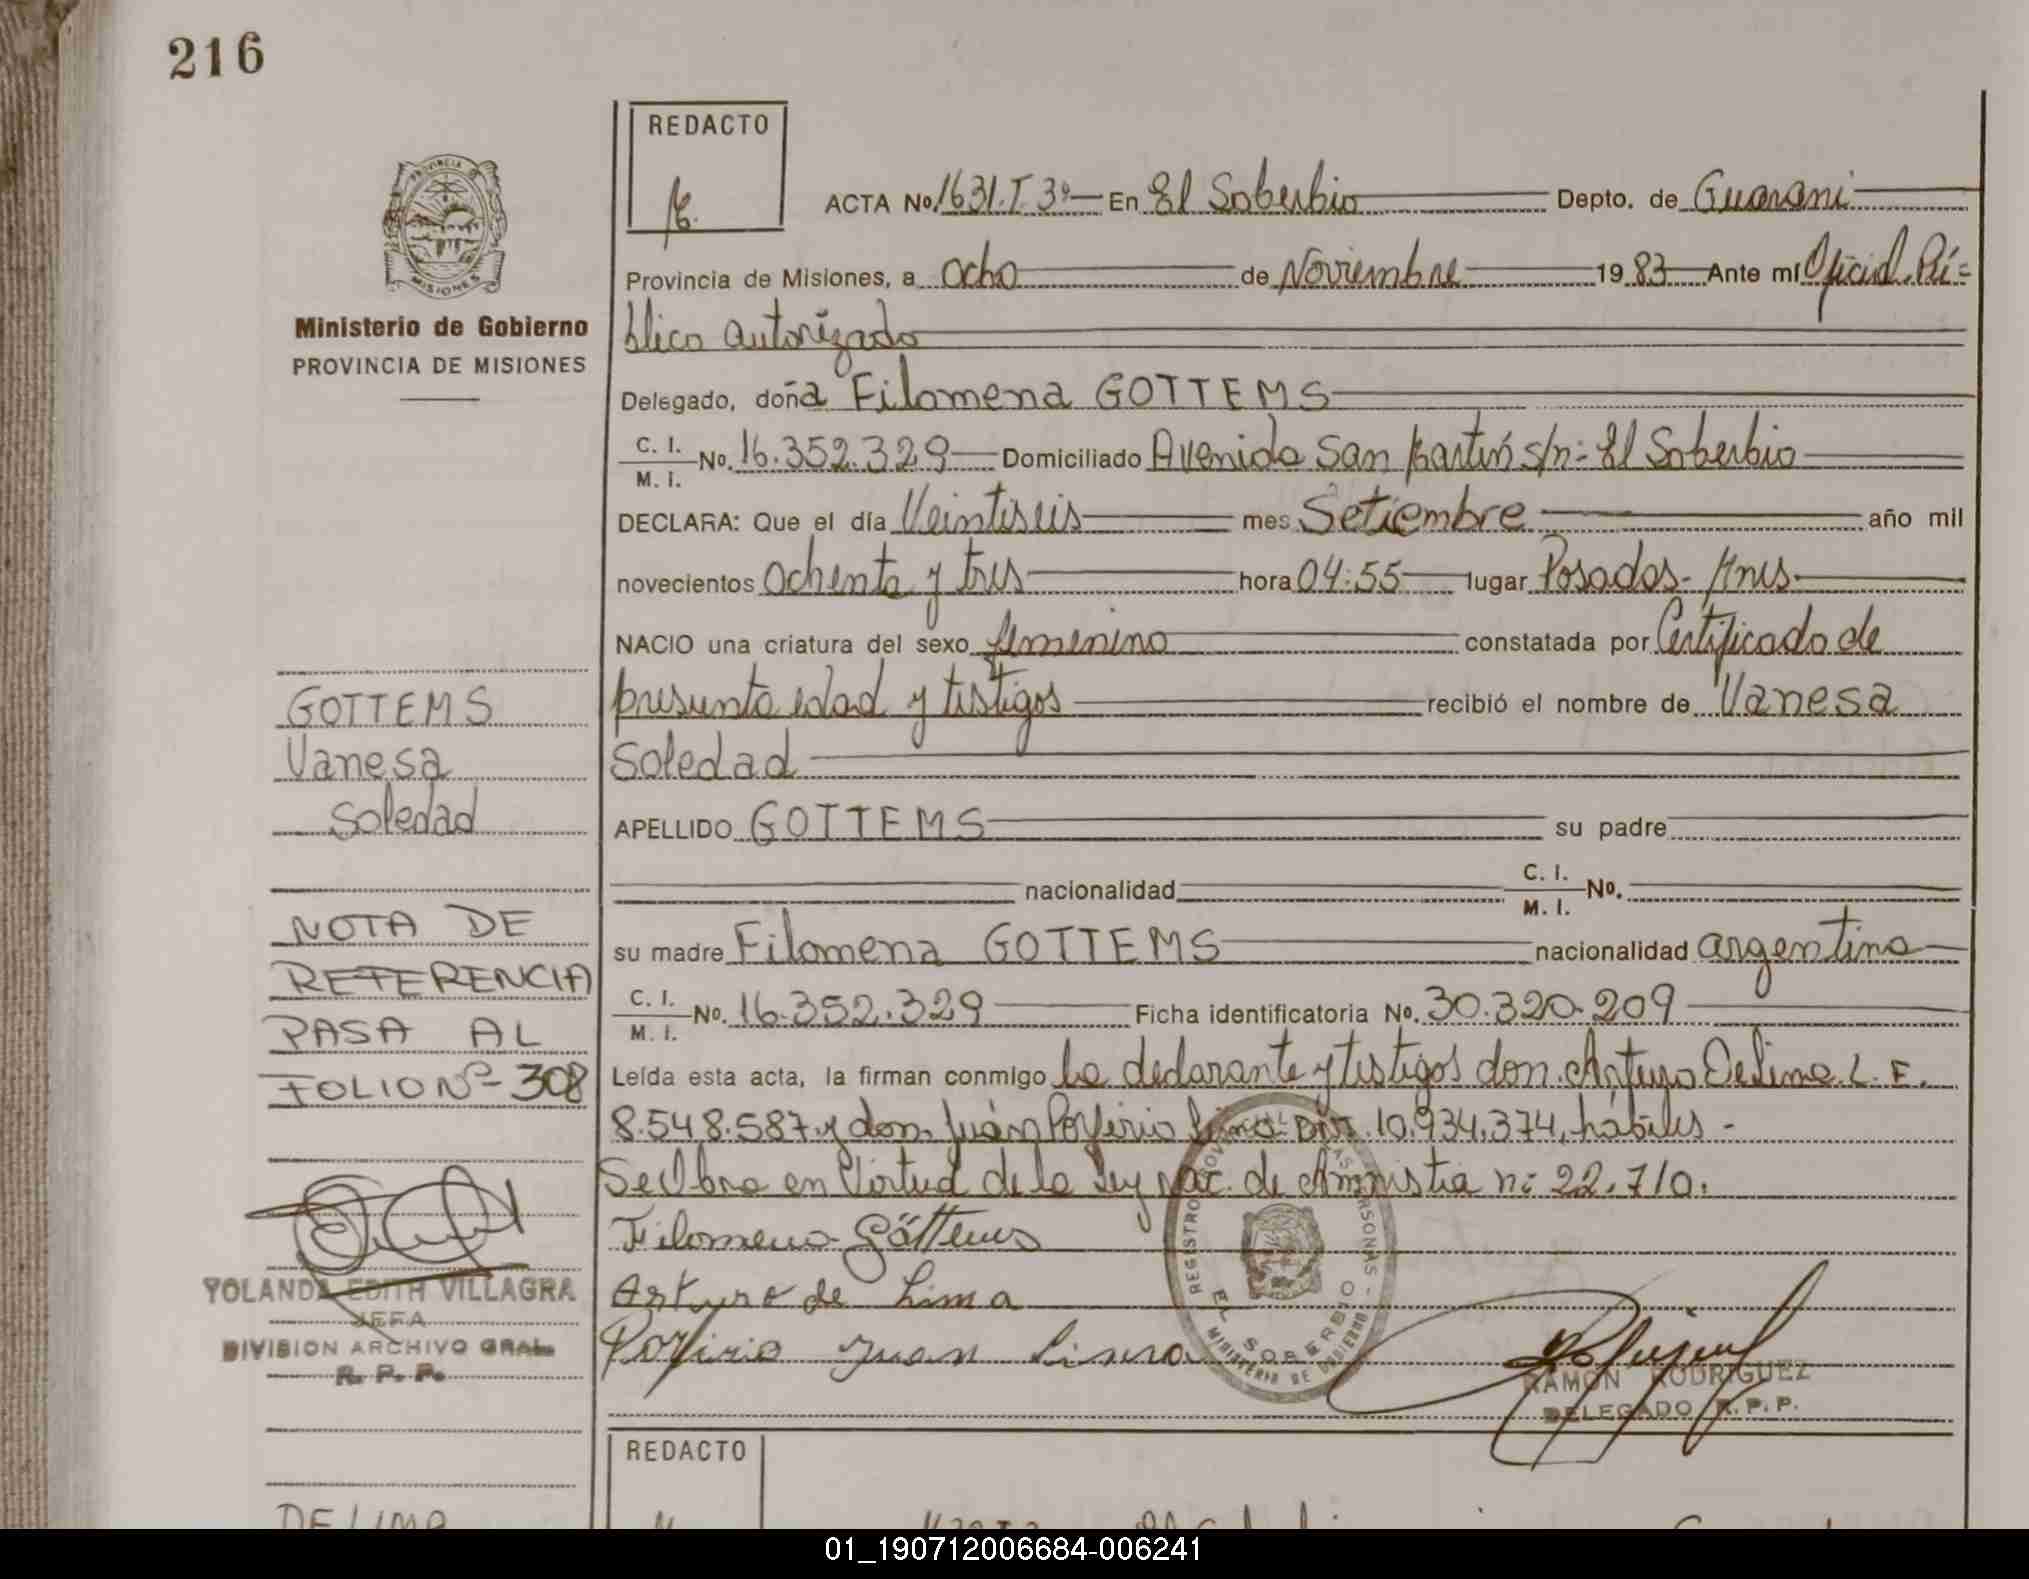 216
REDACTO
PROVINCIA DE
MISIONES
Ministerio de Gobierno
PROVINCIA DE MISIONES
ACTA No. 1631.T.3º En El Soberbio Depto. de Guarani
Provincia de Misiones, a Ocho de Noviembre 1983 Ante mí Oficial Pú=
blico autorizado
Delegado, doña Filomena GOTTEMS
C. I. M. I. No. 16.352.329 Domiciliado Avenida San Martín s/n: El Soberbio
DECLARA: Que el día Veintiseis mes Setiembre año mil
novecientos Ochenta y tres hora 04:55 lugar Posadas- Mnes
NACIO una criatura del sexo femenino constatada por Certificado de
presunta edad y testigos recibió el nombre de Vanesa
Soledad
APELLIDO GOTTEMS su padre
nacionalidad C. I. M. I. No.
su madre Filomena GOTTEMS nacionalidad argentina
C. I. M. I. No. 16.352.329 Ficha identificatoria No. 30.320.209
Leída esta acta, la firman conmigo La declarante y testigos don Arturo De Lima L. E.
8.548.587 y don Juán Porfirio Lima DNI. 10.934.374, hábiles -
Se labra en Virtud de la Ley Nac. de Amnistia n: 22.710.
Filomena Göttems
Arturo de Lima
Porfirio Juan Lima
REGISTRO PROVINCIAL DE LAS PERSONAS
EL SOBERBIO
MINISTERIO DE GOBIERNO
RAMON RODRIGUEZ
DELEGADO R. P. P.
GOTTEMS
Vanesa
Soledad
NOTA DE
REFERENCIA
PASA AL
FOLIO Nº- 308
YOLANDA EDITH VILLAGRA
JEFA
DIVISION ARCHIVO GRAL.
R. P. P.
REDACTO
DE LIMA
01_190712006684-006241